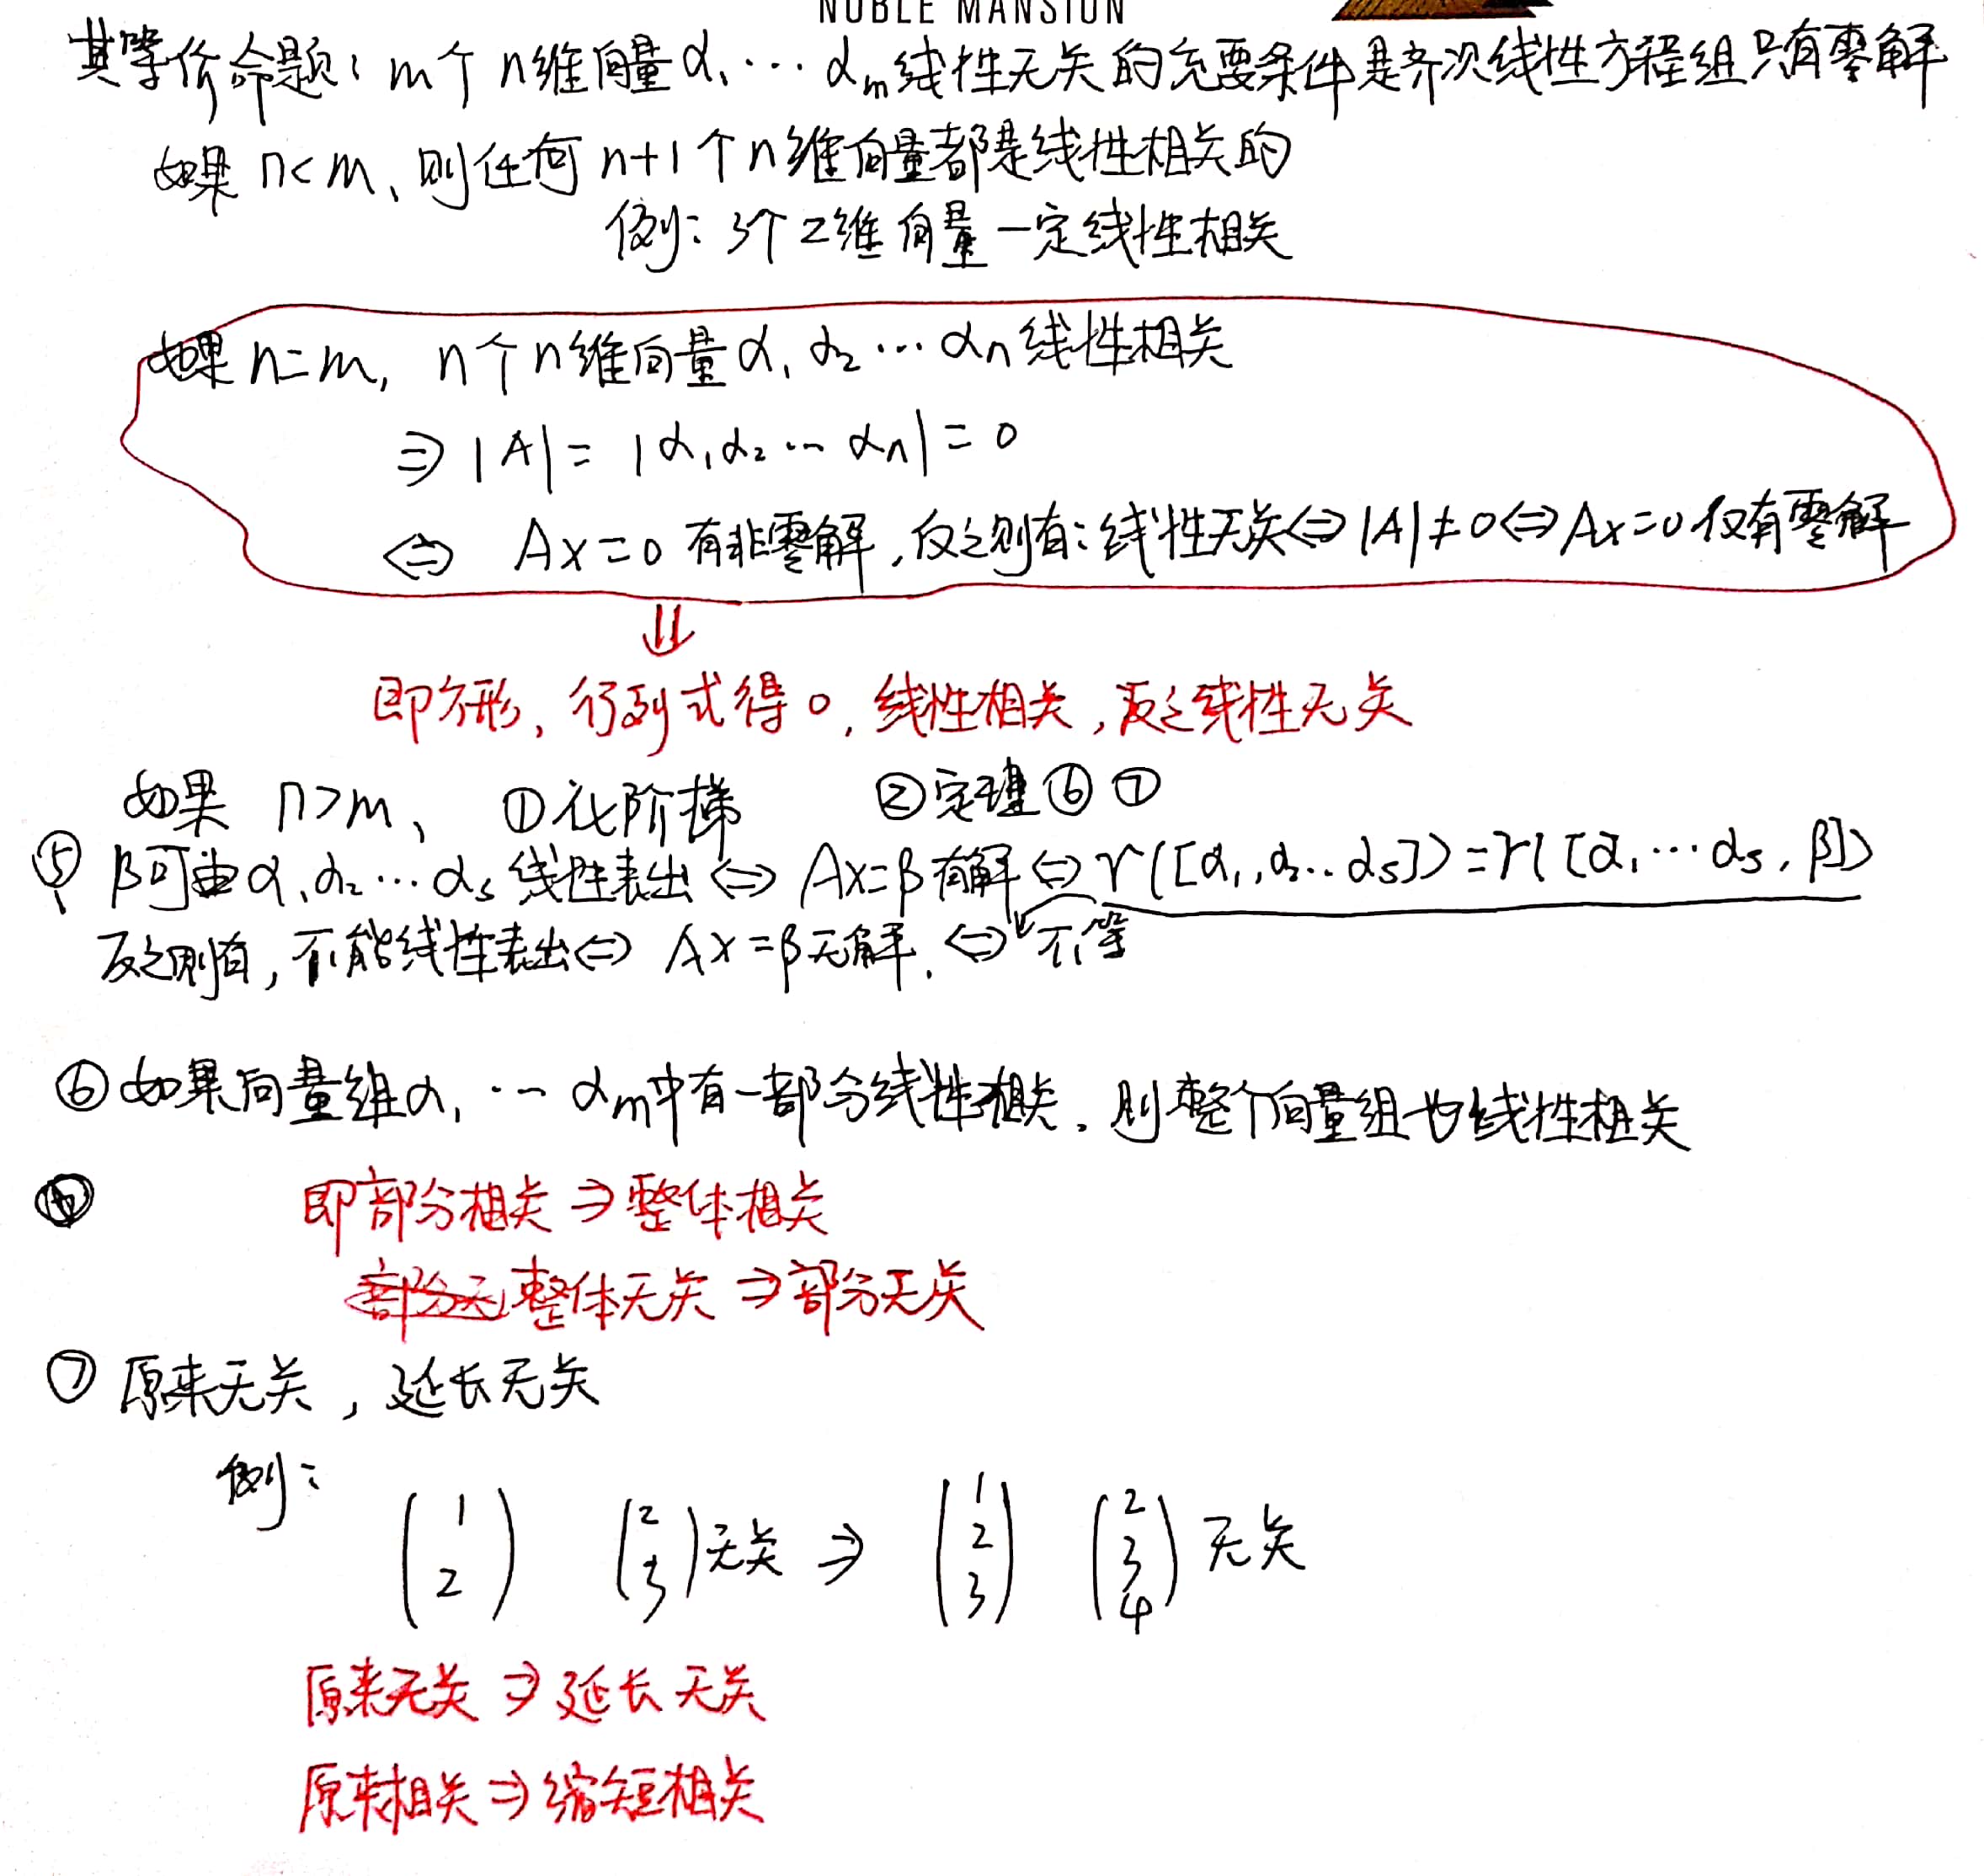 NOBLE MANSION
其等价命题: m个n维向量α₁…αm线性无关的充要条件是齐次线性方程组只有零解
如果 n<m、则任何 n+1个n维向量都是线性相关的
例: 3个2维向量一定线性相关
如果 n=m, n个n维向量α₁ α₂…αn线性相关
⇒ |A| = |α₁ α₂ … αn| = 0
⇔ Ax=0 有非零解, 反之则有: 线性无关⇔|A|≠0⇔Ax=0仅有零解
⇓
即方形, 行列式得0, 线性相关, 反之线性无关
如果 n>m、 ①化阶梯 ②定理⑥⑦
⑤ β可由α₁α₂…αs线性表出⇔ Ax=β有解⇔r([α₁,α₂…αs])=r([α₁…αs,β])
反之则有, 不能线性表出⇔ Ax=β无解. ⇔不等
⑥如果向量组α₁…αm中有一部分线性相关, 则整个向量组也线性相关
即部分相关⇒整体相关
部分无整体无关⇒部分无关
⑦ 原来无关, 延长无关
例:
(1 2) (2 3)无关⇒ (1 2 3) (2 3 4)无关
原来无关⇒延长无关
原来相关⇒缩短相关